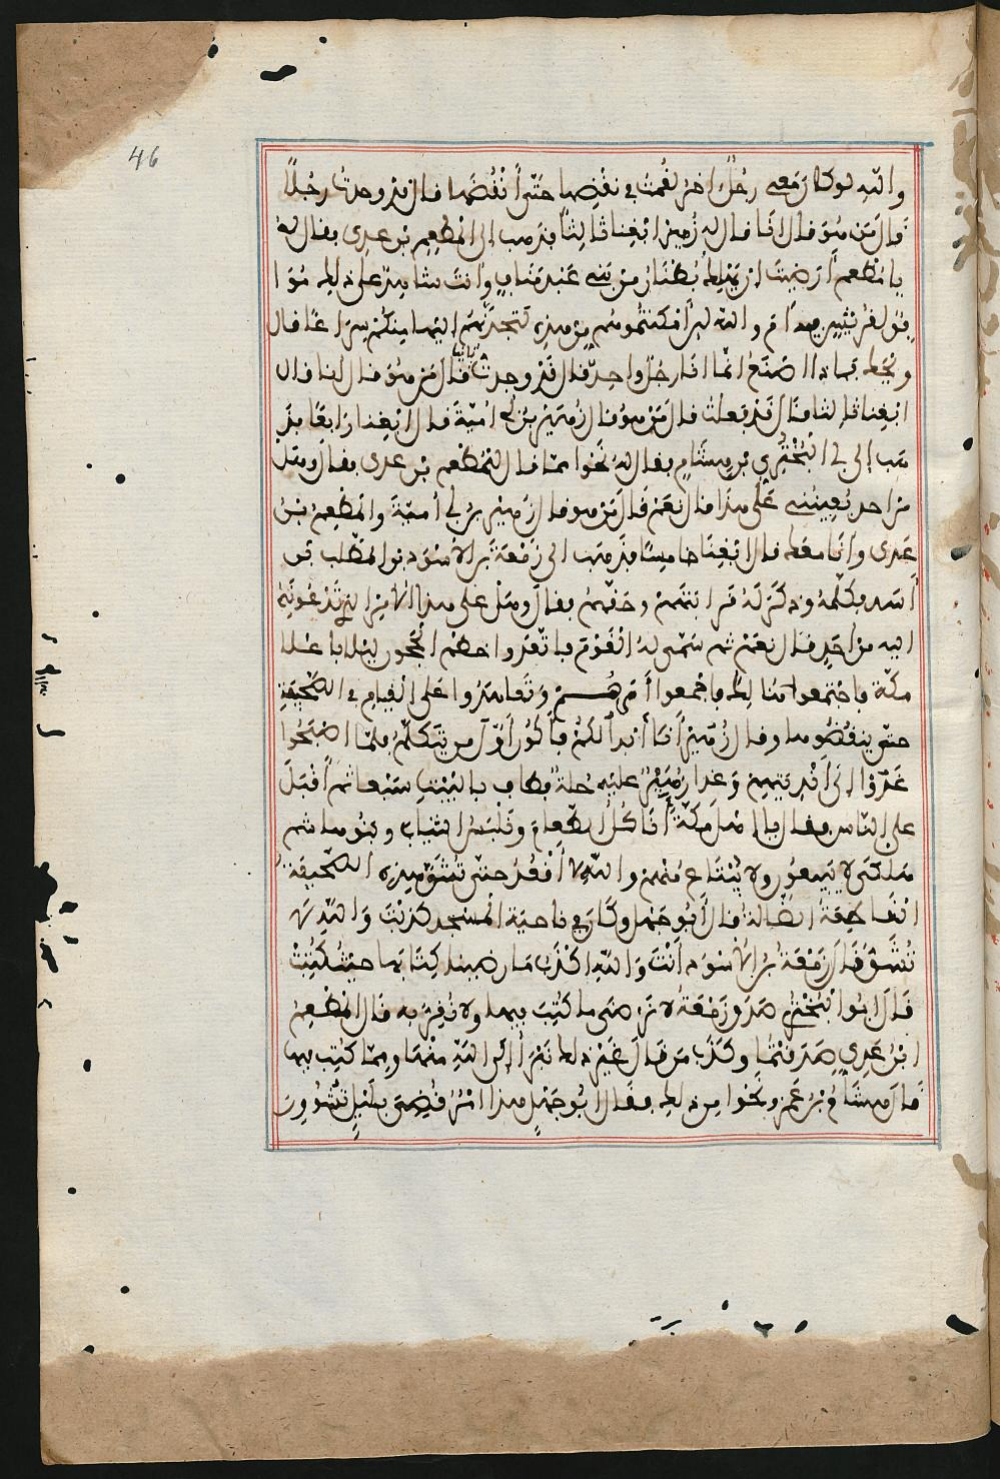 46
والله لو كان معي رجل اخر لقمت في نقضها حتى أنقضها قال قد وجدت رجلا
قال من هو قال انا قال له زهير ابغنا ثالثا فذهب الى المطعم بن عدي فقال له
يا مطعم أرضيت ان يهلك بطنان من بني عبد مناف وانت شاهد على ذلك موا
فق لقريش فيه ام والله لين أمكنتموهم من هذه لتجدنهم اليها منكم سراعا قال
ويحك فماذا اصنع انما انا رجل واحد قال قد وجدت ثانيا قال من هو قال انا قال
ابغنا ثالثا قال قد فعلت قال من هو قال زهير بن أبي امية قال ابغنا رابعا فذ
هب إلى أبي البختري بن هشام فقال له نحوا مما قال للمطعم بن عدي فقال وهل
من احد يعين على هذا قال نعم قال من هو قال زهير بن أبي أمية والمطعم بن
عدي وانا معك قال ابغنا خامسا فذهب الى زمعة بن الاسود بن المطلب بن
أسد فكلمه وذكر له قرابتهم وحقهم فقال وهل على هذا الامر الذي تدعوني
اليه من احد قال نعم ثم سمى له القوم فاتعدوا خطم الحجون ليلا باعلا
مكة فاجتمعوا هنالك فاجمعوا أمرهم وتعاهدوا على القيام في الصحيفة
حتى ينقضوها وقال زهير أنا أبدأكم فأكون أول من يتكلم فلما اصبحوا
غدوا إلى أنديتهم وغدا زهير عليه حلة فطاف بالبيت سبعا ثم أقبل
على الناس فقال يا اهل مكة أناكل الطعام ونلبس الثياب وبنو هاشم
هلكى لا يبيعون ولا يبتاع منهم والله لا أقعد حتى تشق هذه الصحيفة
القاطعة الظالمة قال أبو جهل وكان في ناحية المسجد كذبت والله لا
تشق قال زمعة بن الاسود أنت والله اكذب ما رضينا كتابها حيث كتبت
قال ابوا البختري صدق زمعة لا نرضى ما كتب فيها ولا نقر به قال المطعم
ابن عدي صدقتما وكذب من قال غير ذلك نبرأ إلى الله منها ومما كتب فيها
قال هشام بن عمرو نحوا من ذلك فقال ابو جهل هذا امر قضي بليل تشوور